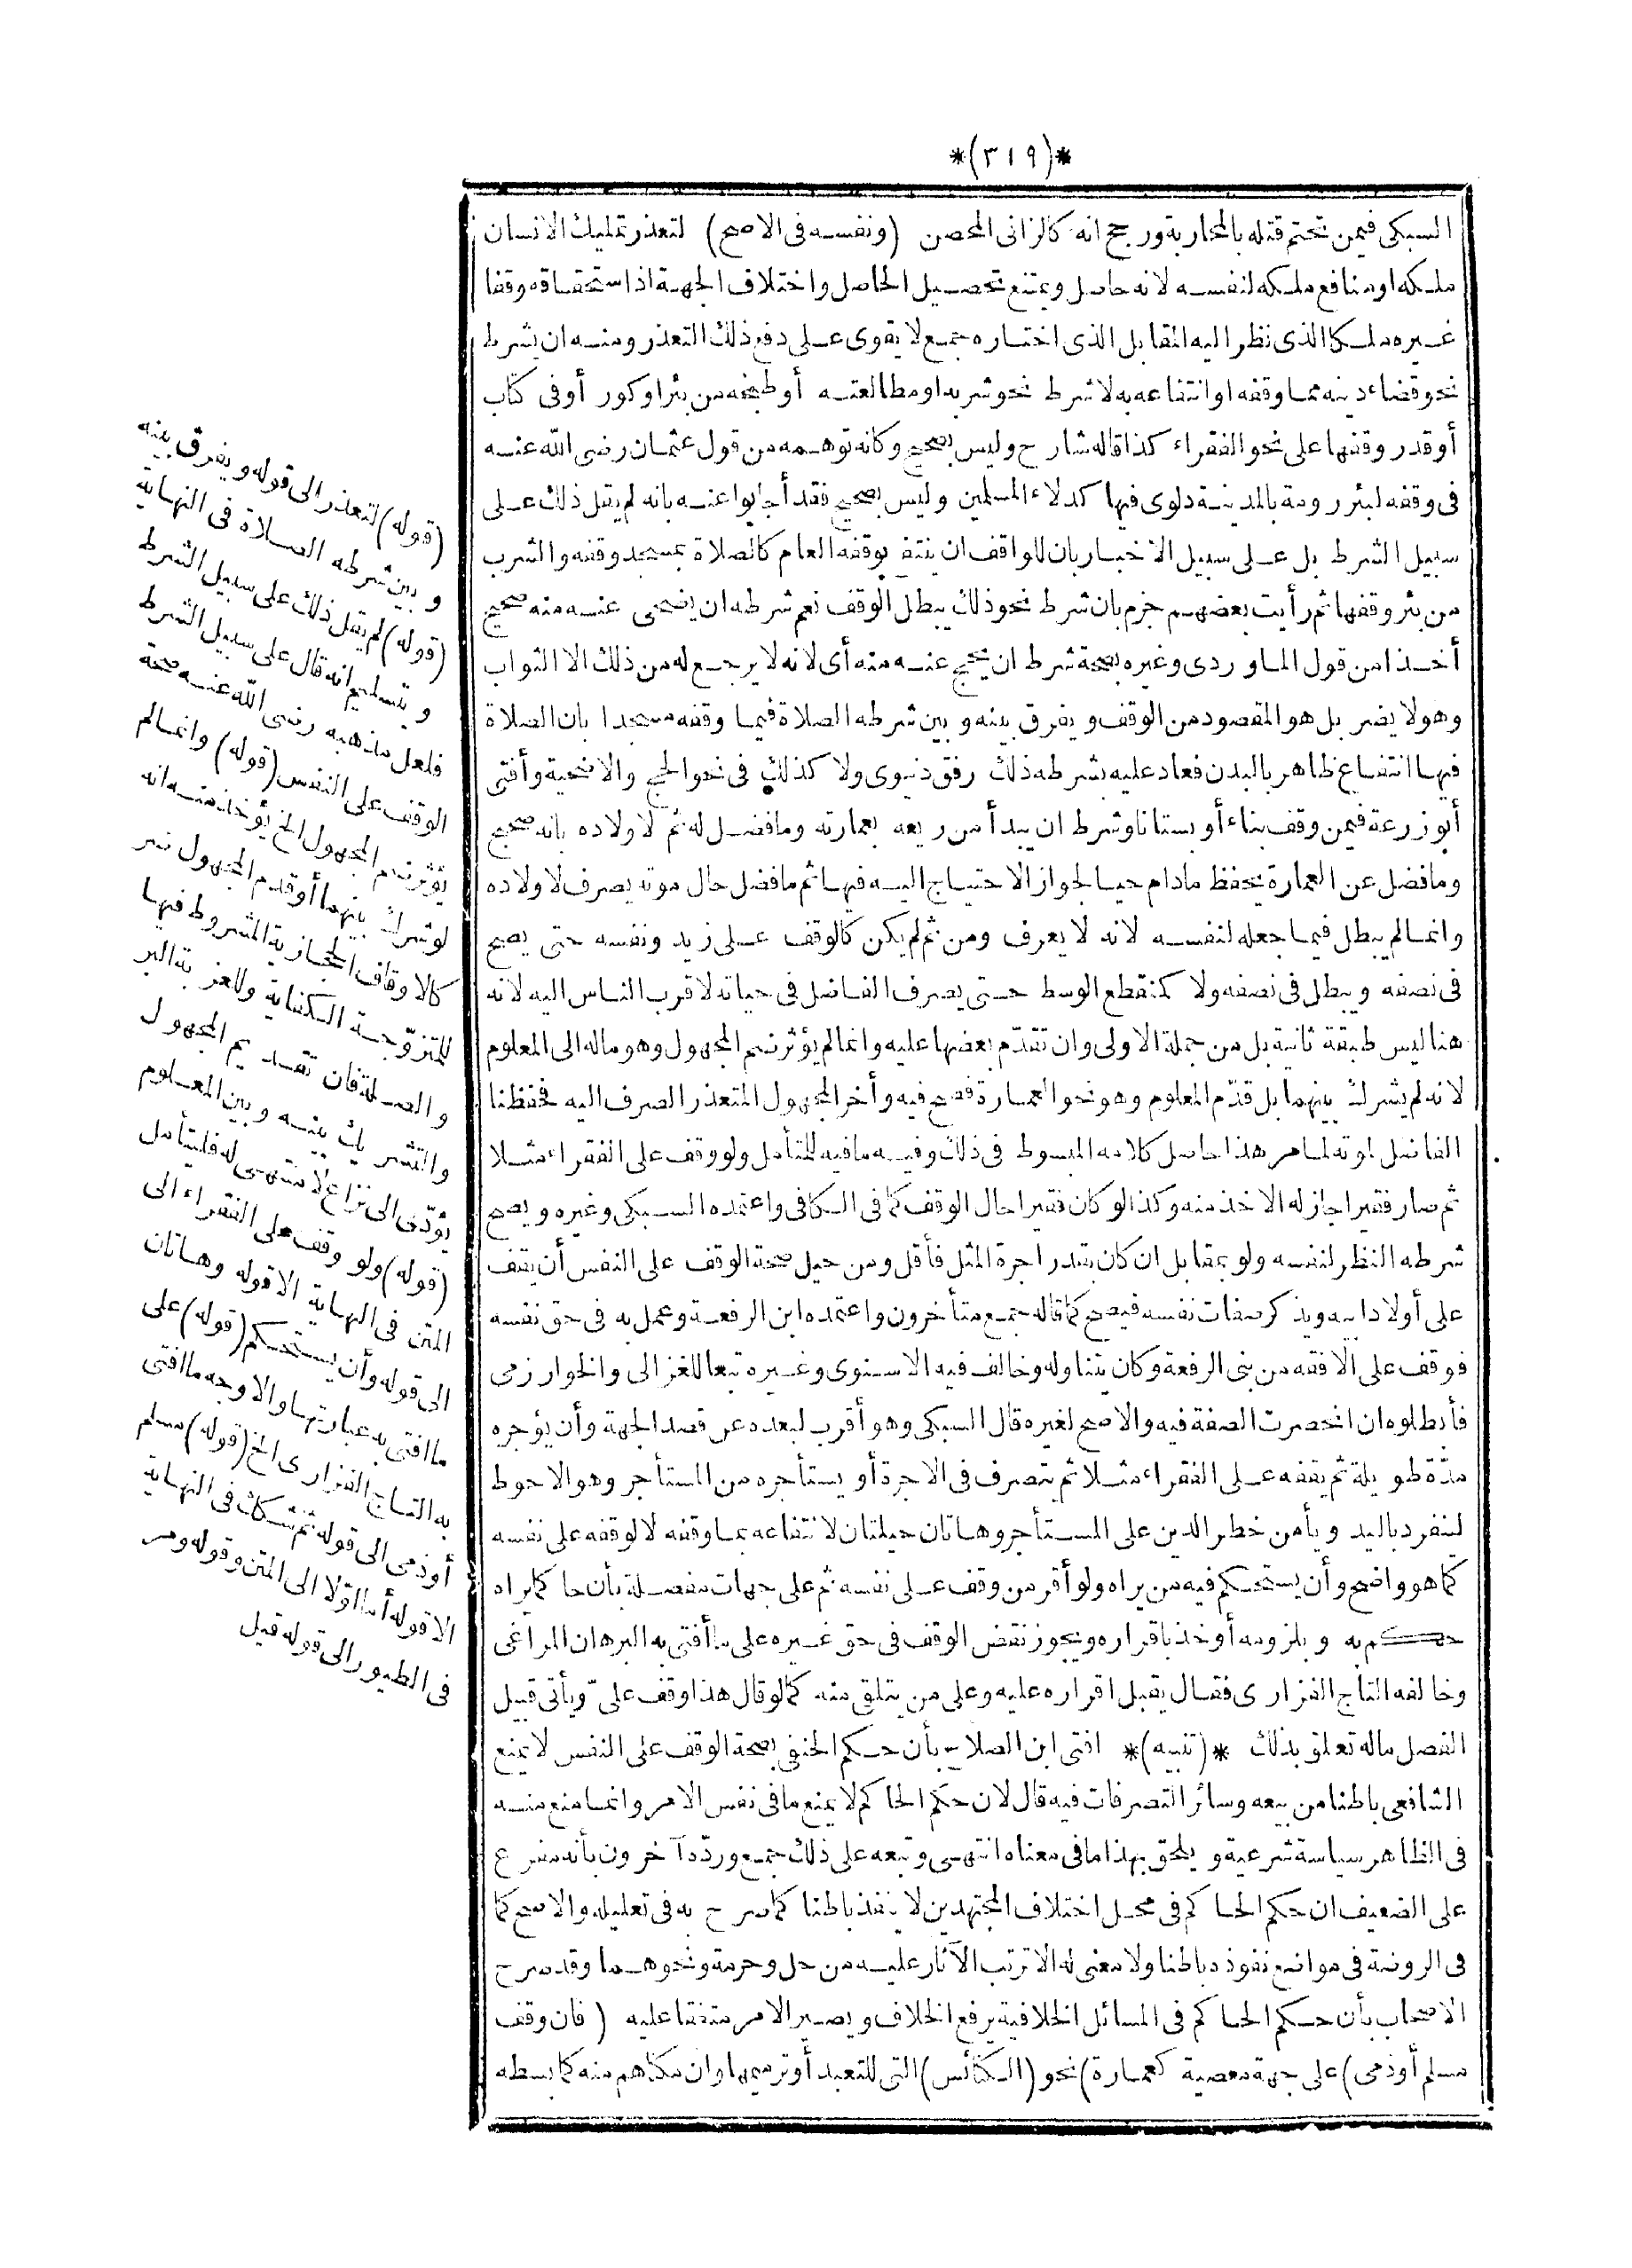 *(٣١٩)*
السبكى فيمن تحتم قتله بالمحاربة ورجح انه كالزانى المحصن (ونفسه فى الاصح) لتعذر تمليك الانسان
ملكه او منافع ملكه لنفسه لانه حاصل ويمتنع تحصيل الحاصل واختلاف الجهة اذ استحقاقه وقفا
غيره ملكا الذى نظر اليه المقابل الذى اختاره جمع لا يقوى على دفع ذلك التعذر ومنه ان يشرط
نحو قضاء دينه مما وقفه او انتفاعه به لا شرط نحو شربه او مطالعته أو طبخه من بئر او كور أو فى كتاب
أو قدر وقفها على نحو الفقراء كذا قاله شارح وليس بصحيح وكانه توهمه من قول عثمان رضى الله عنه
فى وقفه لبئر رومة بالمدينة دلوى فيها كدلاء المسلمين وليس بصحيح فقد أجابوا عنه بانه لم يقل ذلك على
سبيل الشرط بل على سبيل الاخبار بان للواقف ان ينتفع بوقفه العام كالصلاة بمسجد وقفه والشرب
من بئر وقفها ثم رأيت بعضهم جزم بان شرط نحو ذلك يبطل الوقف نعم شرطه ان يضحى عنه منه صحيح
أخذا من قول الماوردى وغيره بصحة شرط ان يحج عنه منه أى لانه لا يرجع له من ذلك الا الثواب
وهو لا يضر بل هو المقصود من الوقف ويفرق بينه وبين شرطه الصلاة فيما وقفه مسجدا بان الصلاة
فيها انتفاع ظاهر بالبدن فعاد عليه بشرطه ذلك رفق دنيوى ولا كذلك فى نحو الحج والاضحية وأفتى
أبو زرعة فيمن وقف بناء أو بستانا وشرط ان يبدأ من ريعه بعمارته وما فضل له ثم لاولاده بانه صحيح
وما فضل عن العمارة يحفظ مادام حيا لجواز الاحتياج اليه فيها ثم ما فضل حال موته يصرف لاولاده
وانما لم يبطل فيما جعله لنفسه لانه لا يعرف ومن ثم لم يكن كالوقف على زيد ونفسه حتى يصح
فى نصفه ويبطل فى نصفه ولا كمنقطع الوسط حتى يصرف الفاضل فى حياته لاقرب الناس اليه لانه
هنا ليس طبقة ثانية بل من جملة الاولى وان تقدّم بعضها عليه وانما لم يؤثر ضم المجهول وهو ماله الى المعلوم
لانه لم يشرك بينهما بل قدّم المعلوم وهو نحو العمارة فصح فيه وأخر المجهول المتعذر الصرف اليه فحفظنا
الفاضل لموته لما مر هذا حاصل كلامه المبسوط فى ذلك وفيه ما فيه للتأمل ولو وقف على الفقراء مثلا
ثم صار فقيرا جاز له الاخذ منه وكذا لو كان فقيرا حال الوقف كما فى الكافى واعتمده السبكى وغيره ويصح
شرطه النظر لنفسه ولو بمقابل ان كان بقدر اجرة المثل فأقل ومن حيل صحة الوقف على النفس أن يقف
على أولاد ابيه ويذكر صفات نفسه فيصح كما قاله جمع متأخرون واعتمده ابن الرفعة وعمل به فى حق نفسه
فوقف على الافقه من بنى الرفعة وكان يتناوله وخالف فيه الاسنوى وغيره تبعا للغزالى والخوارزمى
فأبطلوه ان انحصرت الصفة فيه والاصح لغيره قال السبكى وهو أقرب لبعده عن قصد الجهة وأن يؤجره
مدّة طويلة ثم يقفه على الفقراء مثلا ثم يتصرف فى الاجرة أو يستأجره من المستأجر وهو الاحوط
لينفرد باليد ويأمن خطر الدين على المستأجر وهاتان حيلتان لانتفاعه بما وقفه لا لوقفه على نفسه
كما هو واضح وأن يستحكم فيه من يراه ولو أقر من وقف على نفسه ثم على جهات مفصلة بأن حاكما يراه
حكم به وبلزومه أوخذ باقراره ويجوز نقض الوقف فى حق غيره على ما أفتى به البرهان المراغى
وخالفه التاج الفزارى فقال يقبل اقراره عليه وعلى من يتلقى منه كما لو قال هذا وقف علىّ ويأتى قبيل
الفصل ماله تعلق بذلك *(تنبيه)* افتى ابن الصلاح بأن حكم الحنفى بصحة الوقف على النفس لا يمنع
الشافعى باطنا من بيعه وسائر التصرفات فيه قال لان حكم الحاكم لا يمنع ما فى نفس الامر وانما منع منه
فى الظاهر سياسة شرعية ويلحق بهذا ما فى معناه انتهى وتبعه على ذلك جمع وردّه آخرون بأنه مفرع
على الضعيف ان حكم الحاكم فى محل اختلاف المجتهدين لا ينفذ باطنا كما صرح به فى تعليله والاصح كما
فى الروضة فى مواضع نفوذه باطنا ولا معنى له الا ترتب الآثار عليه من حل وحرمة ونحوهما وقد صرح
الاصحاب بأن حكم الحاكم فى المسائل الخلافية يرفع الخلاف ويصير الامر متفقا عليه (فان وقف
مسلم أو ذمى) على جهة معصية كعمارة) نحو (الكنائس) التى للتعبد أو ترميمها وان مكناهم منه كما بسطه
(قوله) لتعذر الى قوله ويفرق بينه
وبين شرطه الصلاة فى النهاية
(قوله) لم يقل ذلك على سبيل الشرط
وبتسليم انه قال على سبيل الشرط
فلعل مذهبه رضى الله عنه صحة
الوقف على النفس (قوله) وانما لم
يؤثر ضم المجهول الخ يؤخذ منه انه
لو شرك بينهما أو قدم المجهول ضر
كالاوقاف الحجازية المشروط فيها
للمتزوّجة الكفاية وللعزبة البر
والصلة فان تقديم المجهول
والتشريك بينه وبين المعلوم
يؤدّى الى نزاع لا منتهى له فليتأمل
(قوله) ولو وقف على الفقراء الى
المتن فى النهاية الا قوله وهاتان
الى قوله وأن يستحكم (قوله) على
ما افتى به عبارتها والاوجه ما افتى
به التاج الفزارى الخ (قوله) مسلم
أو ذمى الى قوله ثم تشكك فى النهاية
الا قوله أما اوّلا الى المتن وقوله ومر
فى الطيور الى قوله قيل